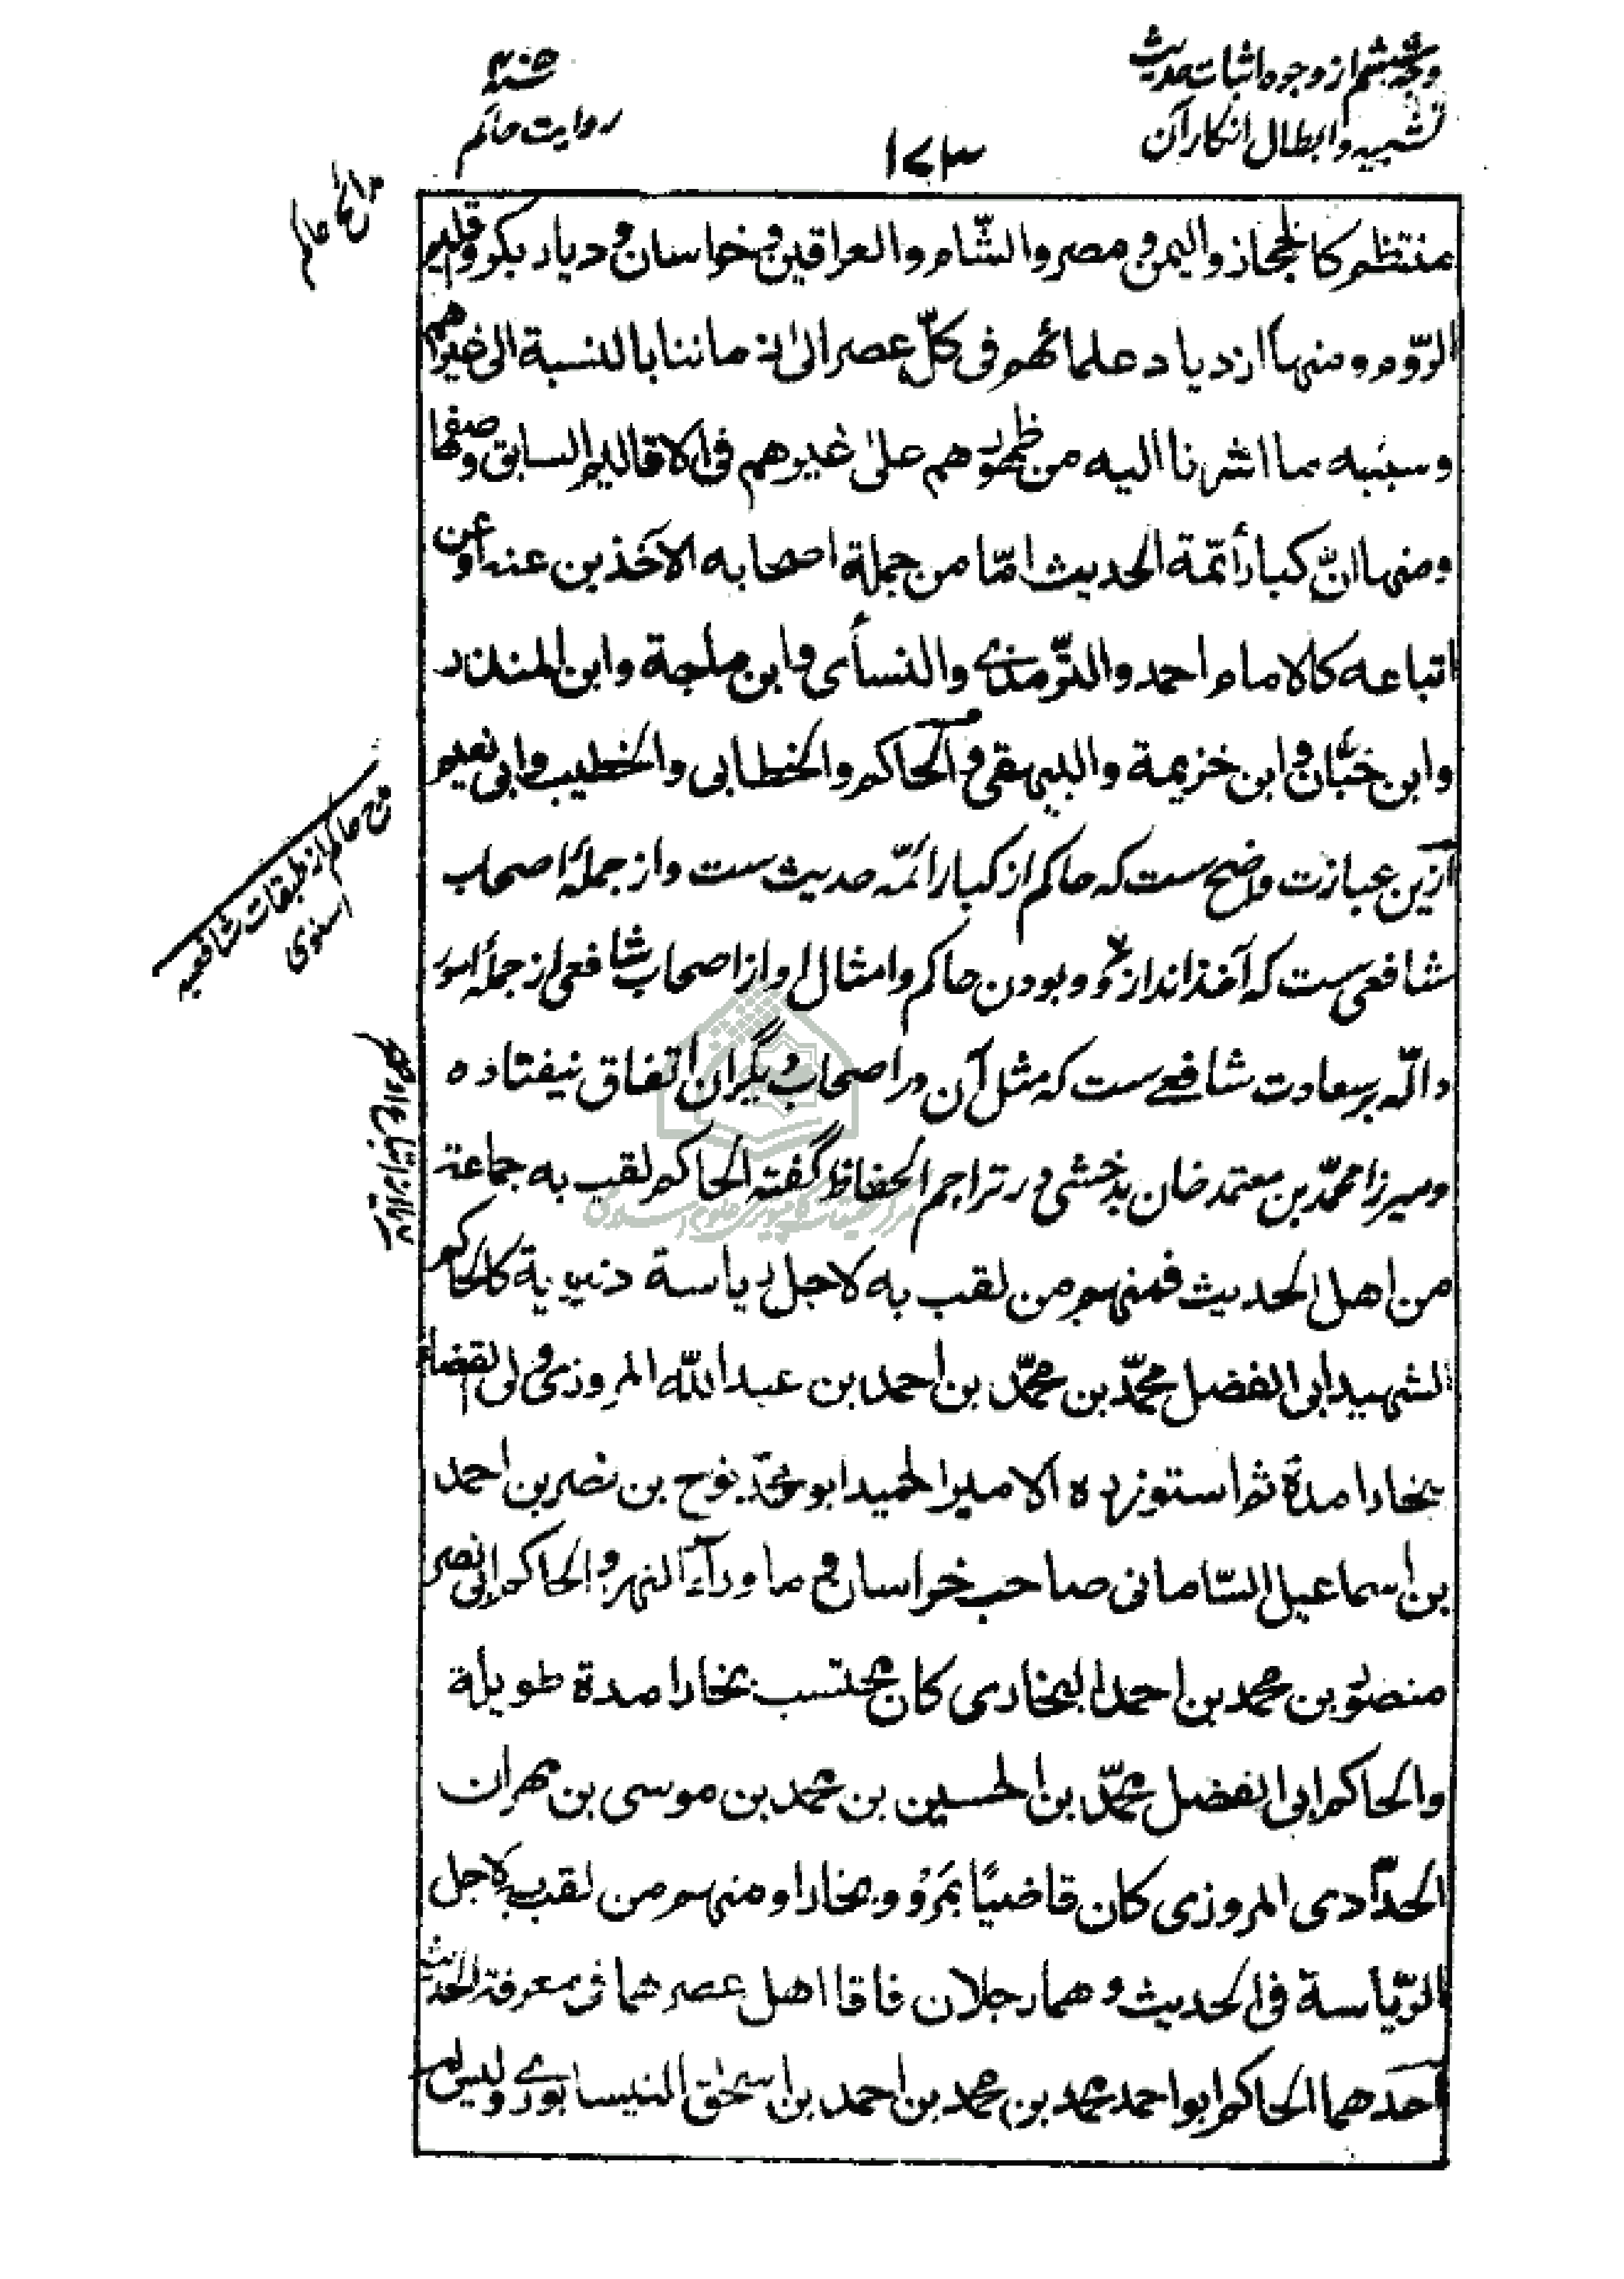 وجه ششم از وجوه اثبات حدیث
تشبیه و ابطال انکار آن
۱۷۳
سنه ۴۰۵
روایت حاکم
مدائح حاکم
منتظم كالحجاز واليمن ومصر والشّام والعراقين وخراسان وديار بكر واقليم
الرّوم ومنها ازدياد علمائهم فى كلّ عصر الىٰ زماننا بالنسبة الى غيرهم
وسببه ما اشرنا اليه من ظهورهم علىٰ غيرهم فى الاقاليم السابق وصفها
ومنها انّ كبار أئمّة الحديث امّا من جملة اصحابه الآخذين عنه او عن
اتباعه كالامام احمد والتّرمذي والنسأى وابن ماجة وابن المنذر
وابن حبّان وابن خزيمة والبيهقى والحاكم والخطابى والخطيب وابى نعيم
مدح حاکم از طبقات شافعیه
اسنوی
ازین عبارت واضح ست که حاکم از کبار ائمّه حدیث ست و از جملهٔ اصحاب
شافعی ست که آخذ اند از و و بودن حاکم و امثال او از اصحاب شافعی از جملهٔ امور
دالّه بر سعادت شافعے ست که مثل آن در اصحاب دیگران اتفاق نیفتاده
ومیرزا محمّد بن معتمد خان بدخشی در تراجم الحفاظ گفته الحاكم لقب به جماعة
من اهل الحديث فمنهم من لقب به لاجل رياسة دنيوية كالحاكم
الشهيد ابى الفضل محمّد بن محمّد بن احمد بن عبد اللّه المروزى ولى القضاء
بخارا مدة ثم استوزره الامير الحميد ابو محمّد نوح بن نصر بن احمد
بن اسماعيل السّامانى صاحب خراسان وما وراء النهر والحاكم ابى نصر
منصور بن محمد بن احمد البخارى كان محتسب بخارا مدة طويلة
والحاكم ابى الفضل محمّد بن الحسين بن محمد بن موسى بن مهران
الحدّادى المروزى كان قاضيًا بمَرْو وبخارا ومنهم من لقب به لاجل
الرّياسة فى الحديث وهما رجلان فاقا اهل عصرهما فى معرفة الحديث
احدهما الحاكم ابو احمد محمد بن محمد بن احمد بن اسحٰق النيسابورے وليس له